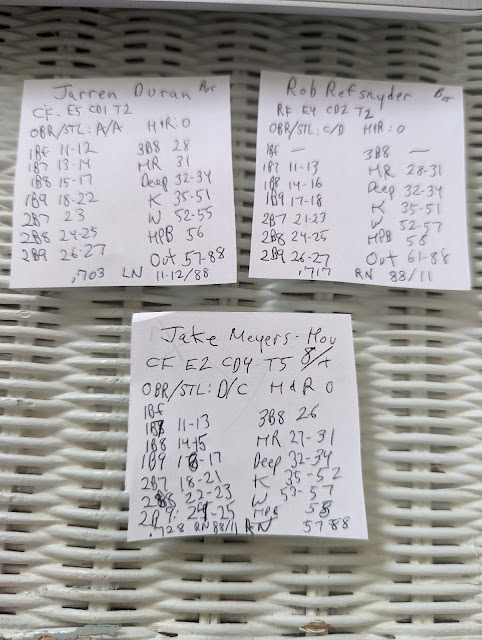 Jarren Duran Bos
CF- E5 CD1 T2
OBR/STL: A/A H+R: 0
1Bf 11-12 3B8 28
1B7 13-14 HR 31
1B8 15-17 Deep 32-34
1B9 18-22 K 35-51
2B7 23 W 52-55
2B8 24-25 HPB 56
2B9 26-27 Out 57-88
.703 LN 11-12/88
Rob Refsnyder Bos
RF E4 CD2 T2
OBR/STL: C/D H+R: 0
1Bf — 3B8 —
1B7 11-13 HR 28-31
1B8 14-16 Deep 32-34
1B9 17-18 K 35-51
2B7 21-23 W 52-57
2B8 24-25 HPB 58
2B9 26-27 Out 61-88
.717 RN 88/11
Jake Meyers- Hou
CF E2 CD4 T5
OBR/STL: D/C H&R 0
1Bf
1B7 11-13 3B8 26
1B8 14-15 HR 27-31
1B9 16-17 Deep 32-34
2B7 18-21 K 35-52
2B8 22-23 W 53-57
2B9 24-25 HPB 58
.728 RN 88/11 57-88